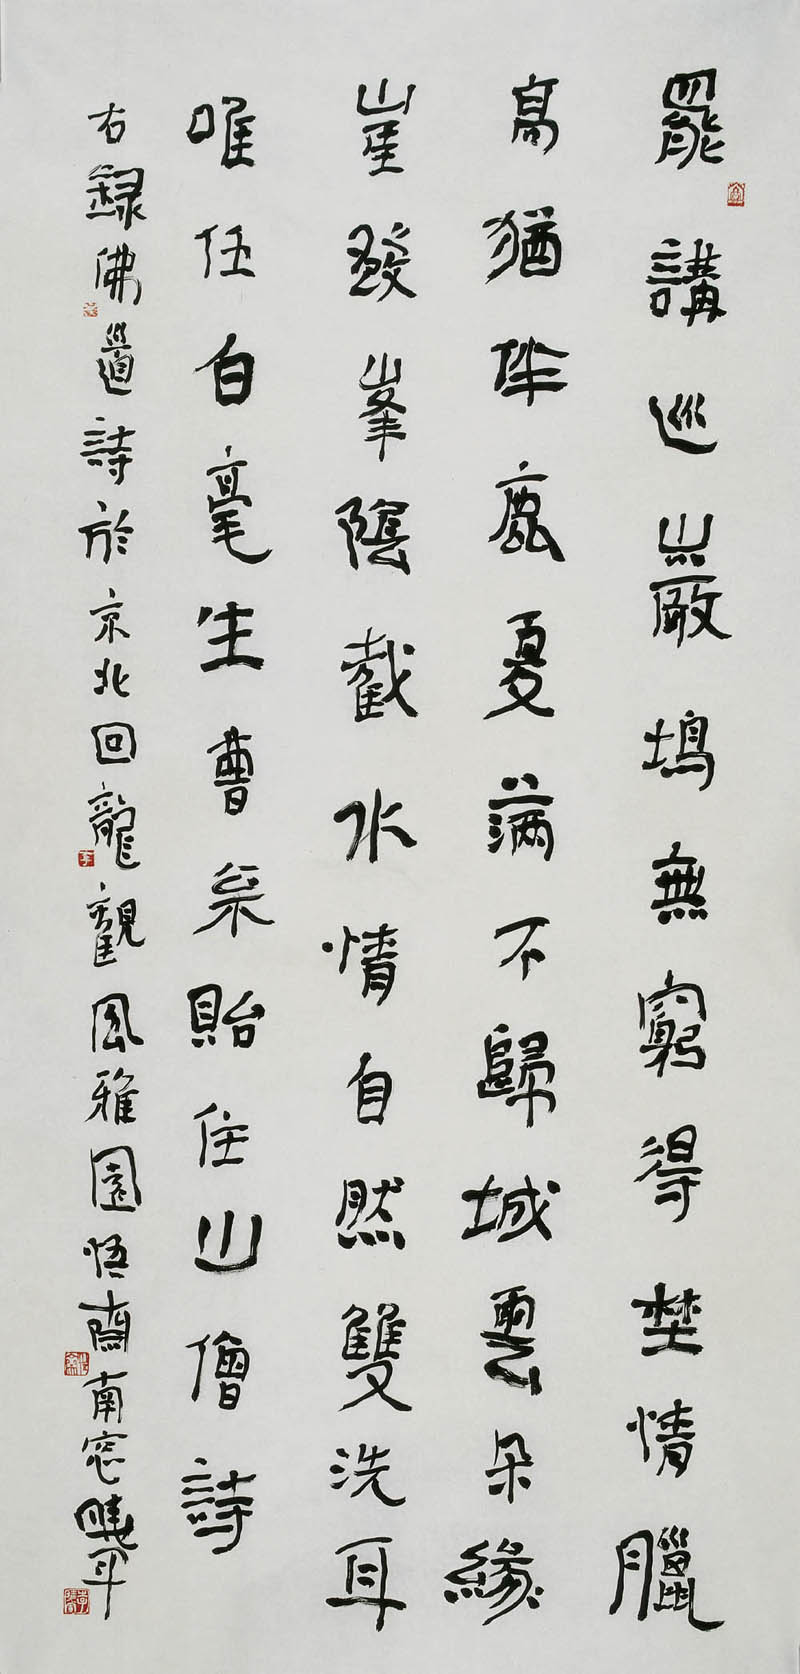 罷講巡巖塢無窮得埜情臘
高猶伴鹿夏滿不歸城雲朵緣
崖發峯陰截水情自然雙洗耳
唯任白毫生曹溪貽住山僧詩
右錄佛道詩於京北回龍觀風雅園悟齋南窓曉軍